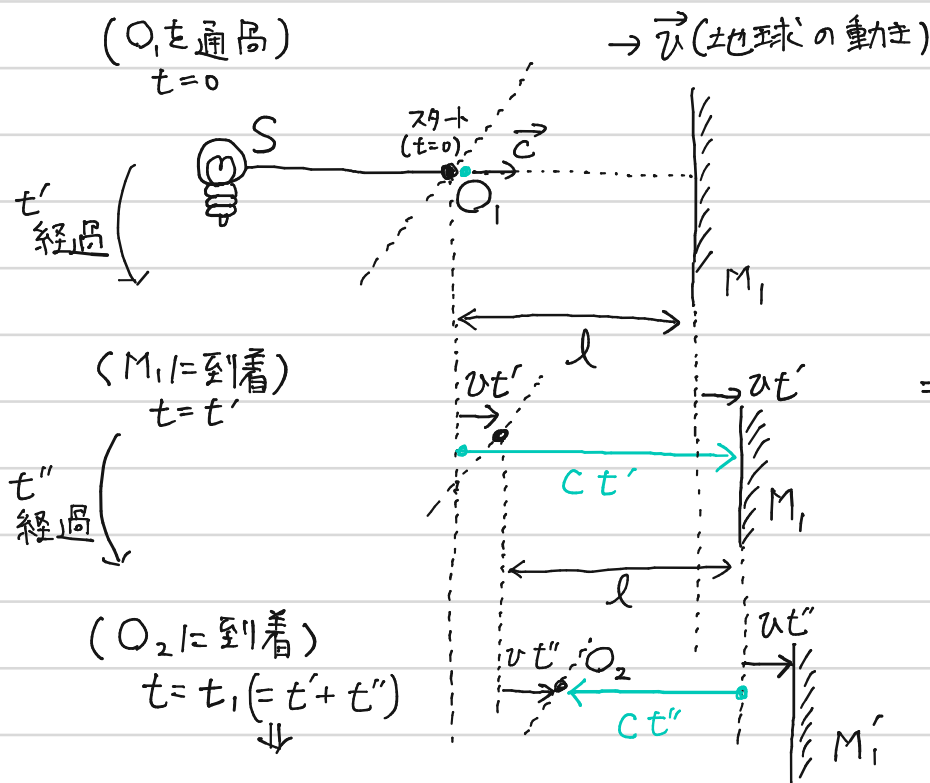 (O₁を通過)
t=0
→ v⃗ (地球の動き)
S
スタート
(t=0)
c⃗
O₁
t′
経過
M₁
l
(M₁に到着)
t=t′
vt′
vt′
=
ct′
M₁
t″
経過
l
(O₂に到着)
t=t₁(=t′+t″)
⇓
vt″
O₂
vt″
ct″
M₁′